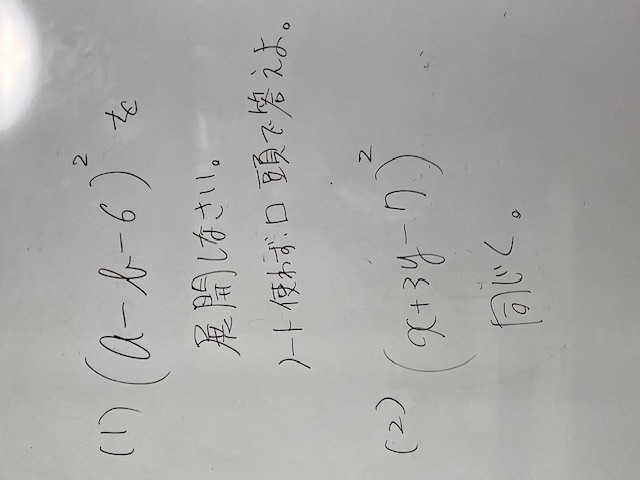 (1) (a-b-6)² を
展開しなさい。
ノート使わず口頭で答えよ。
(2) (x+3y-7)²
同じく。